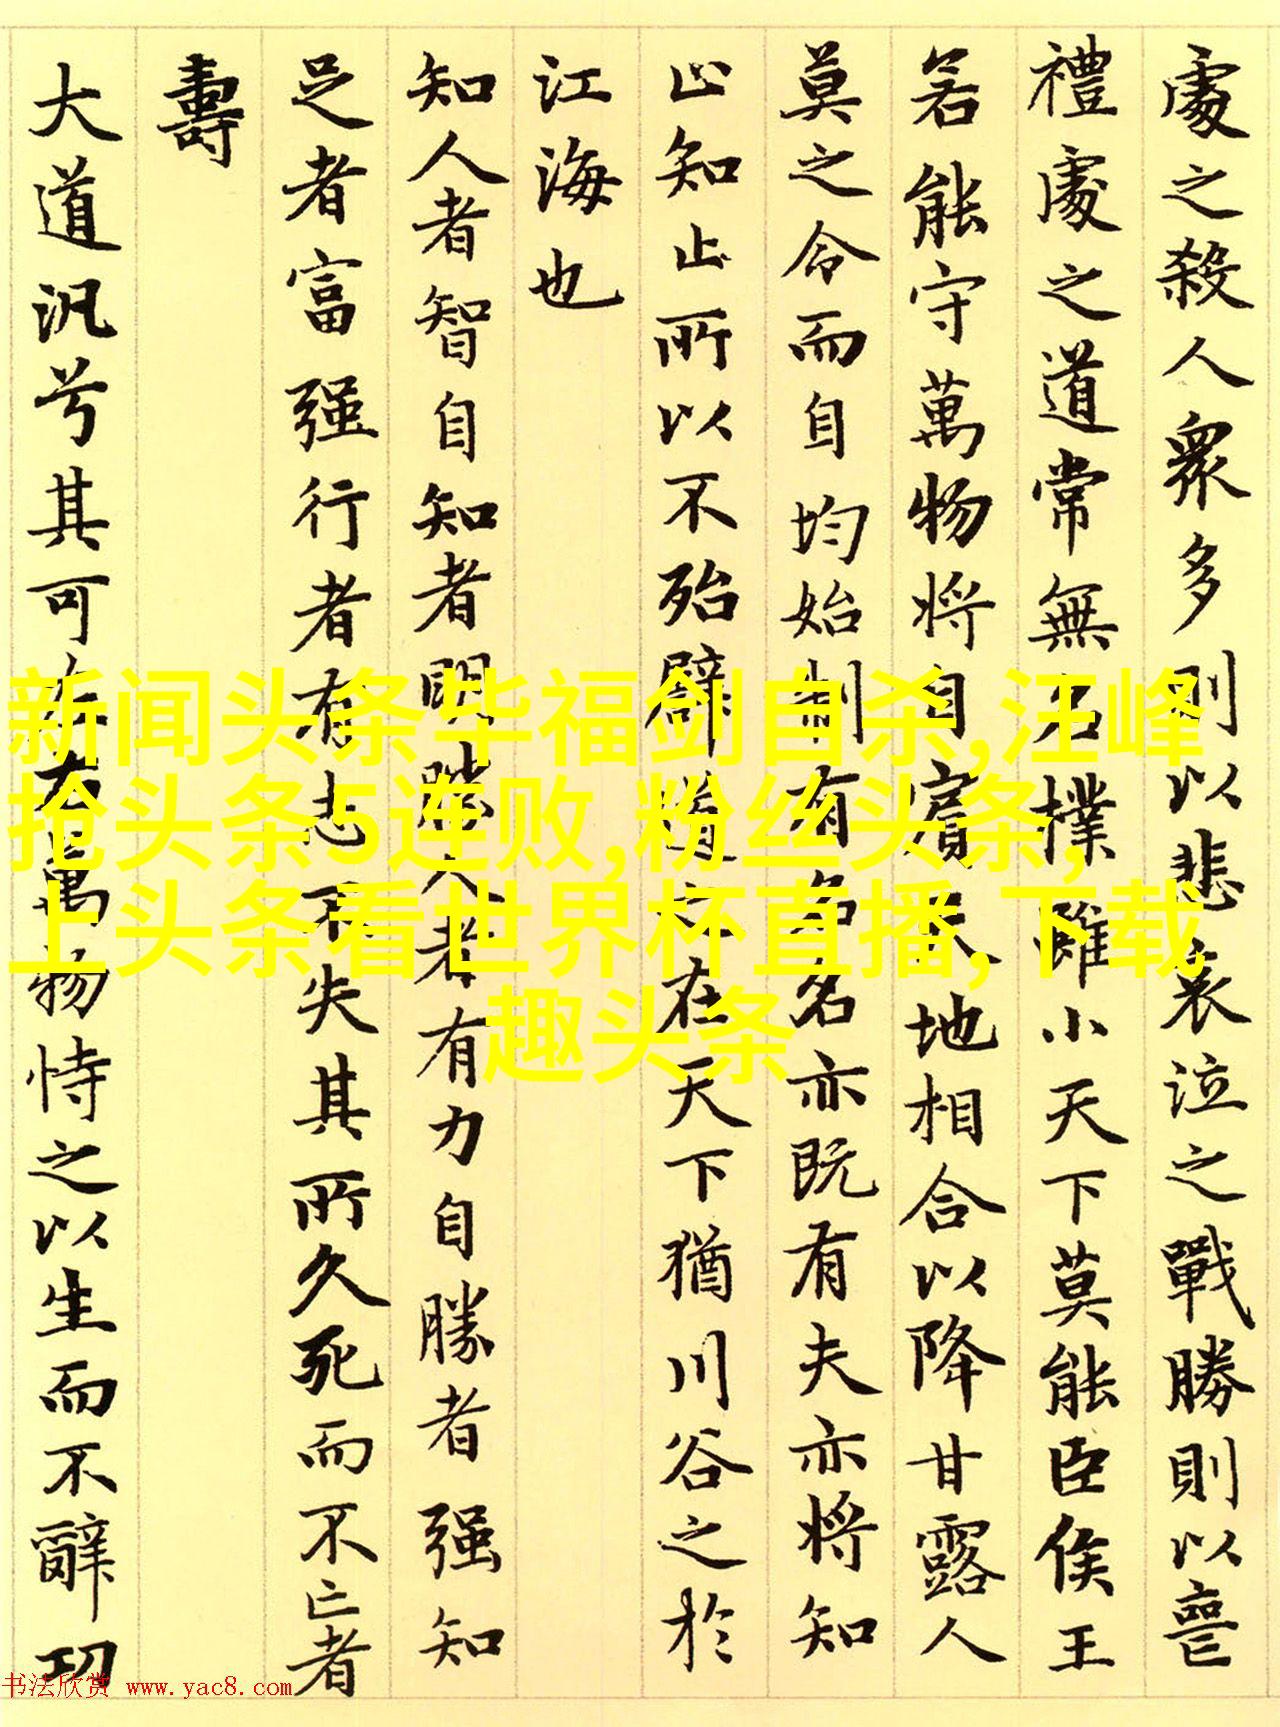 處之殺人衆多則以悲哀泣之戰勝則以喪
禮處之道常無名樸雖小天下莫能臣侯王
若能守萬物將自賓天地相合以降甘露人
莫之令而自均始制有名名亦既有夫亦將知
止知止所以不殆譬道之在天下猶川谷之於
江海也
知人者智自知者明勝人者有力自勝者强知
足者富强行者有志不失其所久死而不亡者
壽
大道汎兮其可左右萬物恃之以生而不辭功
新闻头条毕福剑自杀,汪峰
抢头条5连败,粉丝头条,
上头条看世界杯直播,下载,
趣头条
书法欣赏 www.yac8.com